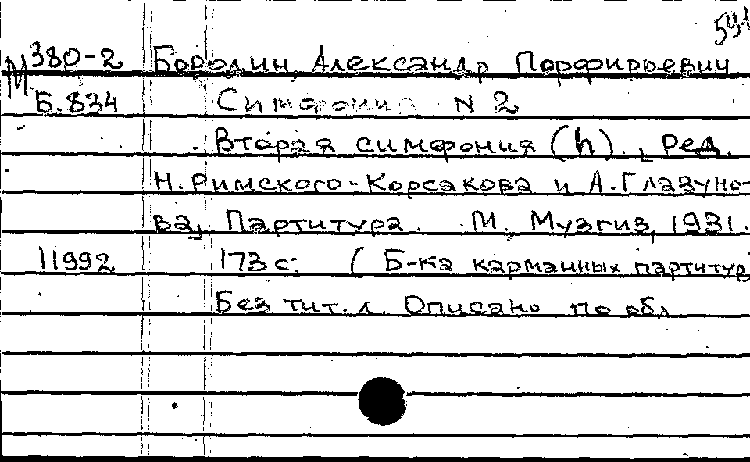 541
М 380-2 Бородин, Александр Порфирьевич
Б.834 Симфония N 2
Вторая симфония (h). Ред.
Н. Римского-Корсакова и А. Глазуно-
ва, Партитура. М., Музгиз, 1931.
11992 173 с. (Б-ка карманных партитур
Без тит. л. Описано по обл.